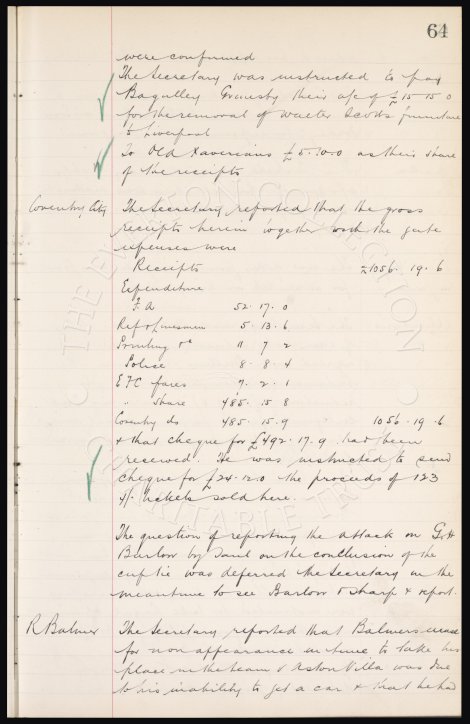 64
were confirmed
The Secretary was instructed to pay
Bagulley Grimsby their a/c of £15.15.0
for the removal of Walter Scott's furniture
to Liverpool
To Old Xaverians £5.10.0 as their share
of the receipts
Coventry City The Secretary reported that the gross
receipts herein together with the gate
expenses were
Receipts £1056. 19. 6
Expenditure
F A 52. 17. 0
Ref & Linesmen 5. 13. 6
Printing &c 11 7 2
Police 8. 8. 4
EFC fares 7. 2. 1
" Share 485. 15 8
Coventry do 485. 15. 9 1056. 19. 6
& that cheque for £492. 17. 9. had been
received. He was instructed to send
cheque for £24. 12. 0 the proceeds of 123
4/- tickets sold here.
The question of reporting the attack on G H
Barlow by on the conclusion of the
cup tie was deferred the Secretary in the
meantime to see Barlow & Sharp & report.
R Balmer The Secretary reported that Balmers excuse
for non appearance in time to take his
place in the team v Aston Villa was due
to his inability to get a car & that he had
THE EVERTON COLLECTION
CHARITABLE TRUST